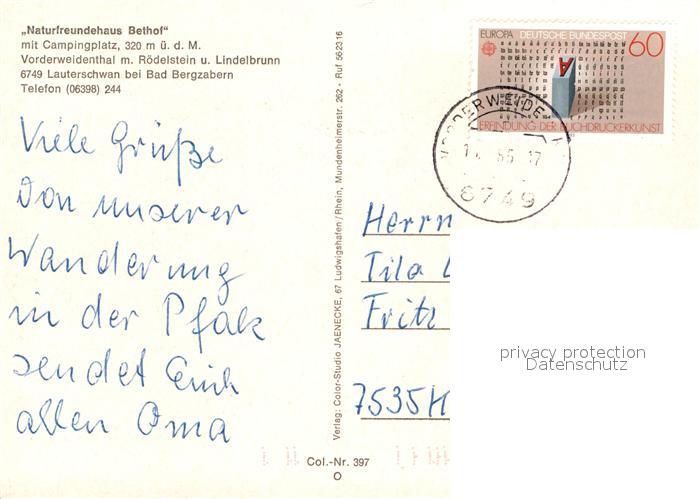 „Naturfreundehaus Bethof"
mit Campingplatz, 320 m ü. d. M.
Vorderweidenthal m. Rödelstein u. Lindelbrunn
6749 Lauterschwan bei Bad Bergzabern
Telefon (06398) 244
Viele Grüße
von unserer
Wanderung
in der Pfalz
sendet Euch
allen Oma
Verlag: Color-Studio JAENECKE, 67 Ludwigshafen/Rhein, Mundenheimerstr. 262 - Ruf 562316
Col.-Nr. 397
EUROPA DEUTSCHE BUNDESPOST 60
A
ERFINDUNG DER BUCHDRUCKERKUNST
VORDERWEIDE
85 - 17
6749
Herrn
Tila
Fritz
7535 H
privacy protection
Datenschutz